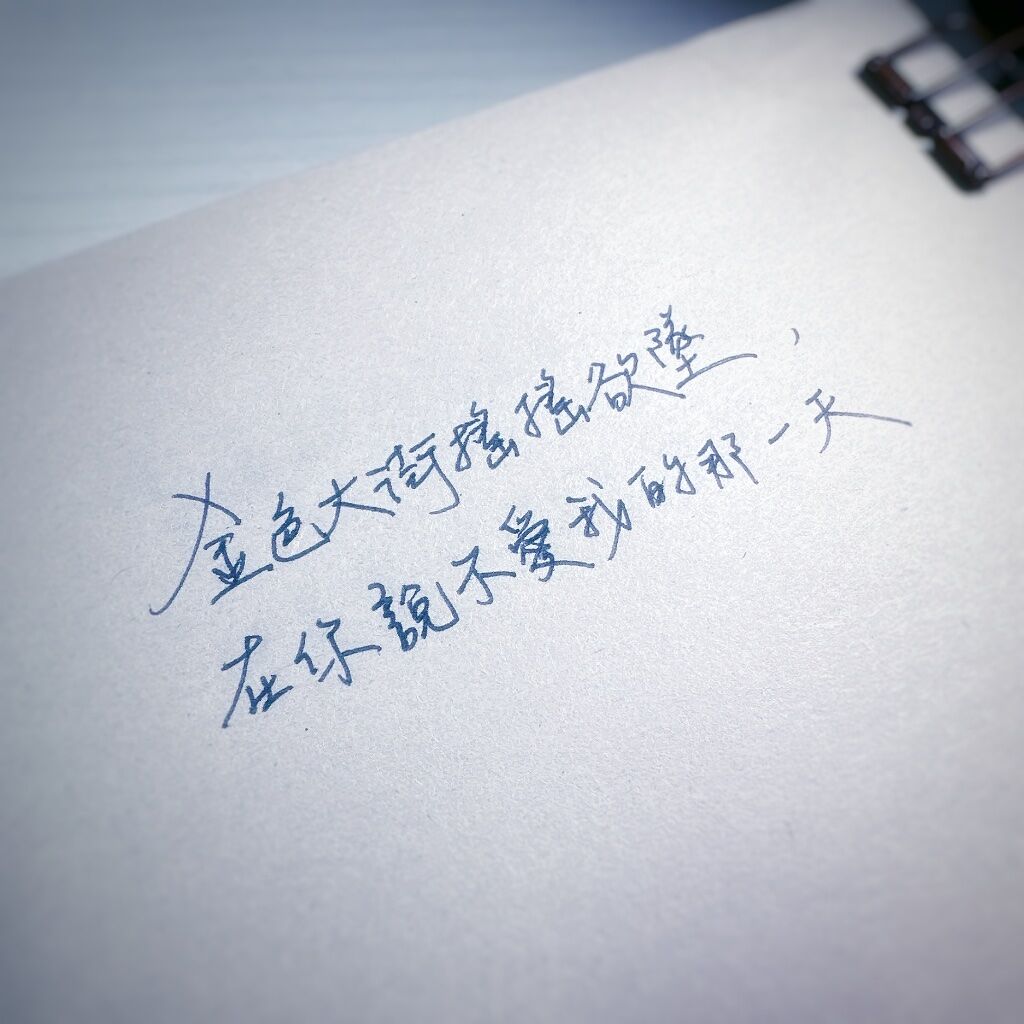 金色大街搖搖欲墜，
在你說不愛我的那一天